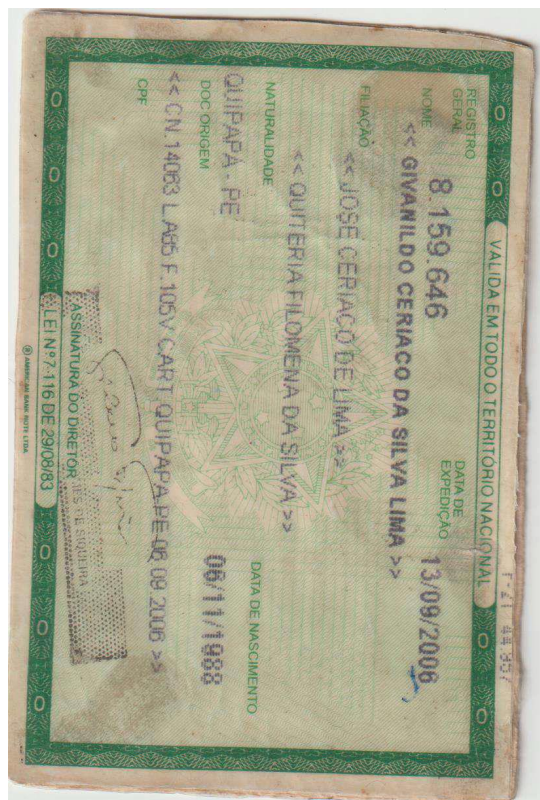 VÁLIDA EM TODO O TERRITÓRIO NACIONAL
REGISTRO GERAL 8.159.646 DATA DE EXPEDIÇÃO 13/09/2006
NOME
<< GIVANILDO CERIACO DA SILVA LIMA >>
FILIAÇÃO
<< JOSE CERIACO DE LIMA >>
<< QUITERIA FILOMENA DA SILVA >>
NATURALIDADE DATA DE NASCIMENTO
QUIPAPÁ - PE 06/11/1988
DOC ORIGEM
<< CN.14063 L.A85 F.105V CART. QUIPAPA.PE-06.09.2006 >>
CPF
DE SIQUEIRA
ASSINATURA DO DIRETOR
LEI Nº 7.116 DE 29/08/83
AMERICAN BANK NOTE LTDA.